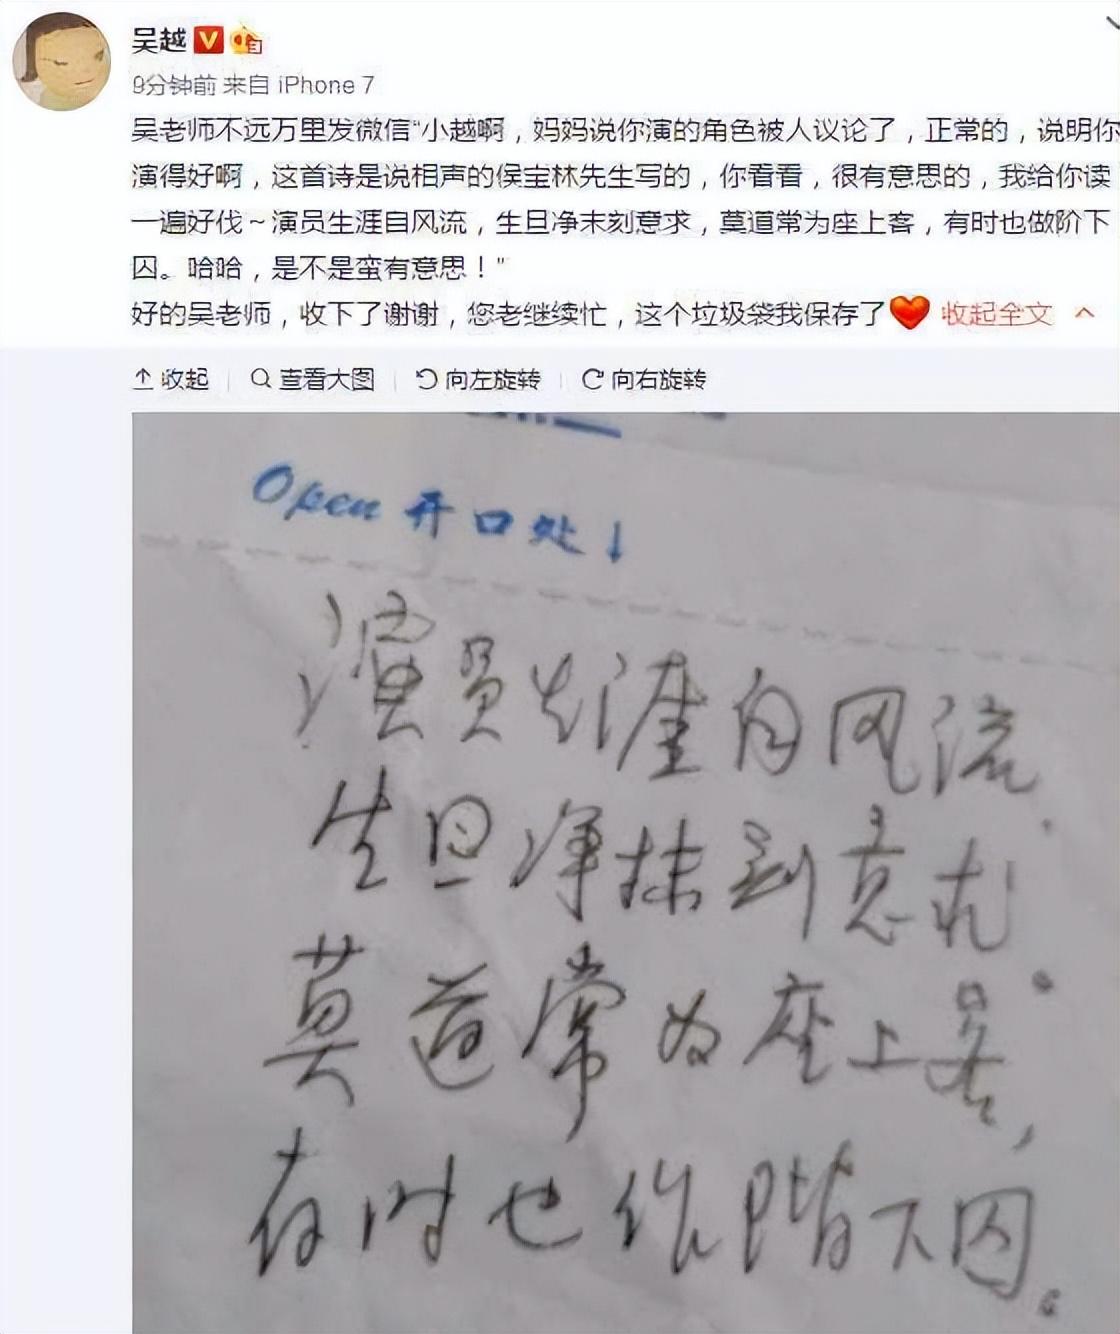 吴越
9分钟前 来自 iPhone 7
吴老师不远万里发微信"小越啊，妈妈说你演的角色被人议论了，正常的，说明你
演得好啊，这首诗是说相声的侯宝林先生写的，你看看，很有意思的，我给你读
一遍好伐～演员生涯自风流，生旦净末刻意求，莫道常为座上客，有时也做阶下
囚。哈哈，是不是蛮有意思！"
好的吴老师，收下了谢谢，您老继续忙，这个垃圾袋我保存了❤️ 收起全文
收起 查看大图 向左旋转 向右旋转
Open 开口处↓
演员生涯自风流
生旦净抹刻意求.
莫道常为座上客,
有时也作阶下囚.